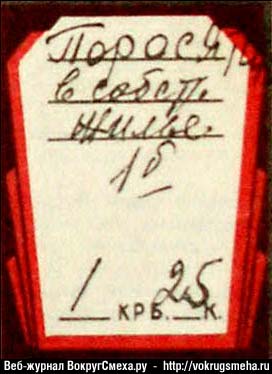 Порося
в собст.
жилье.
1б
1 КРБ. 25 К.
Веб-журнал ВокругСмеха.ру - http://vokrugsmeha.ru